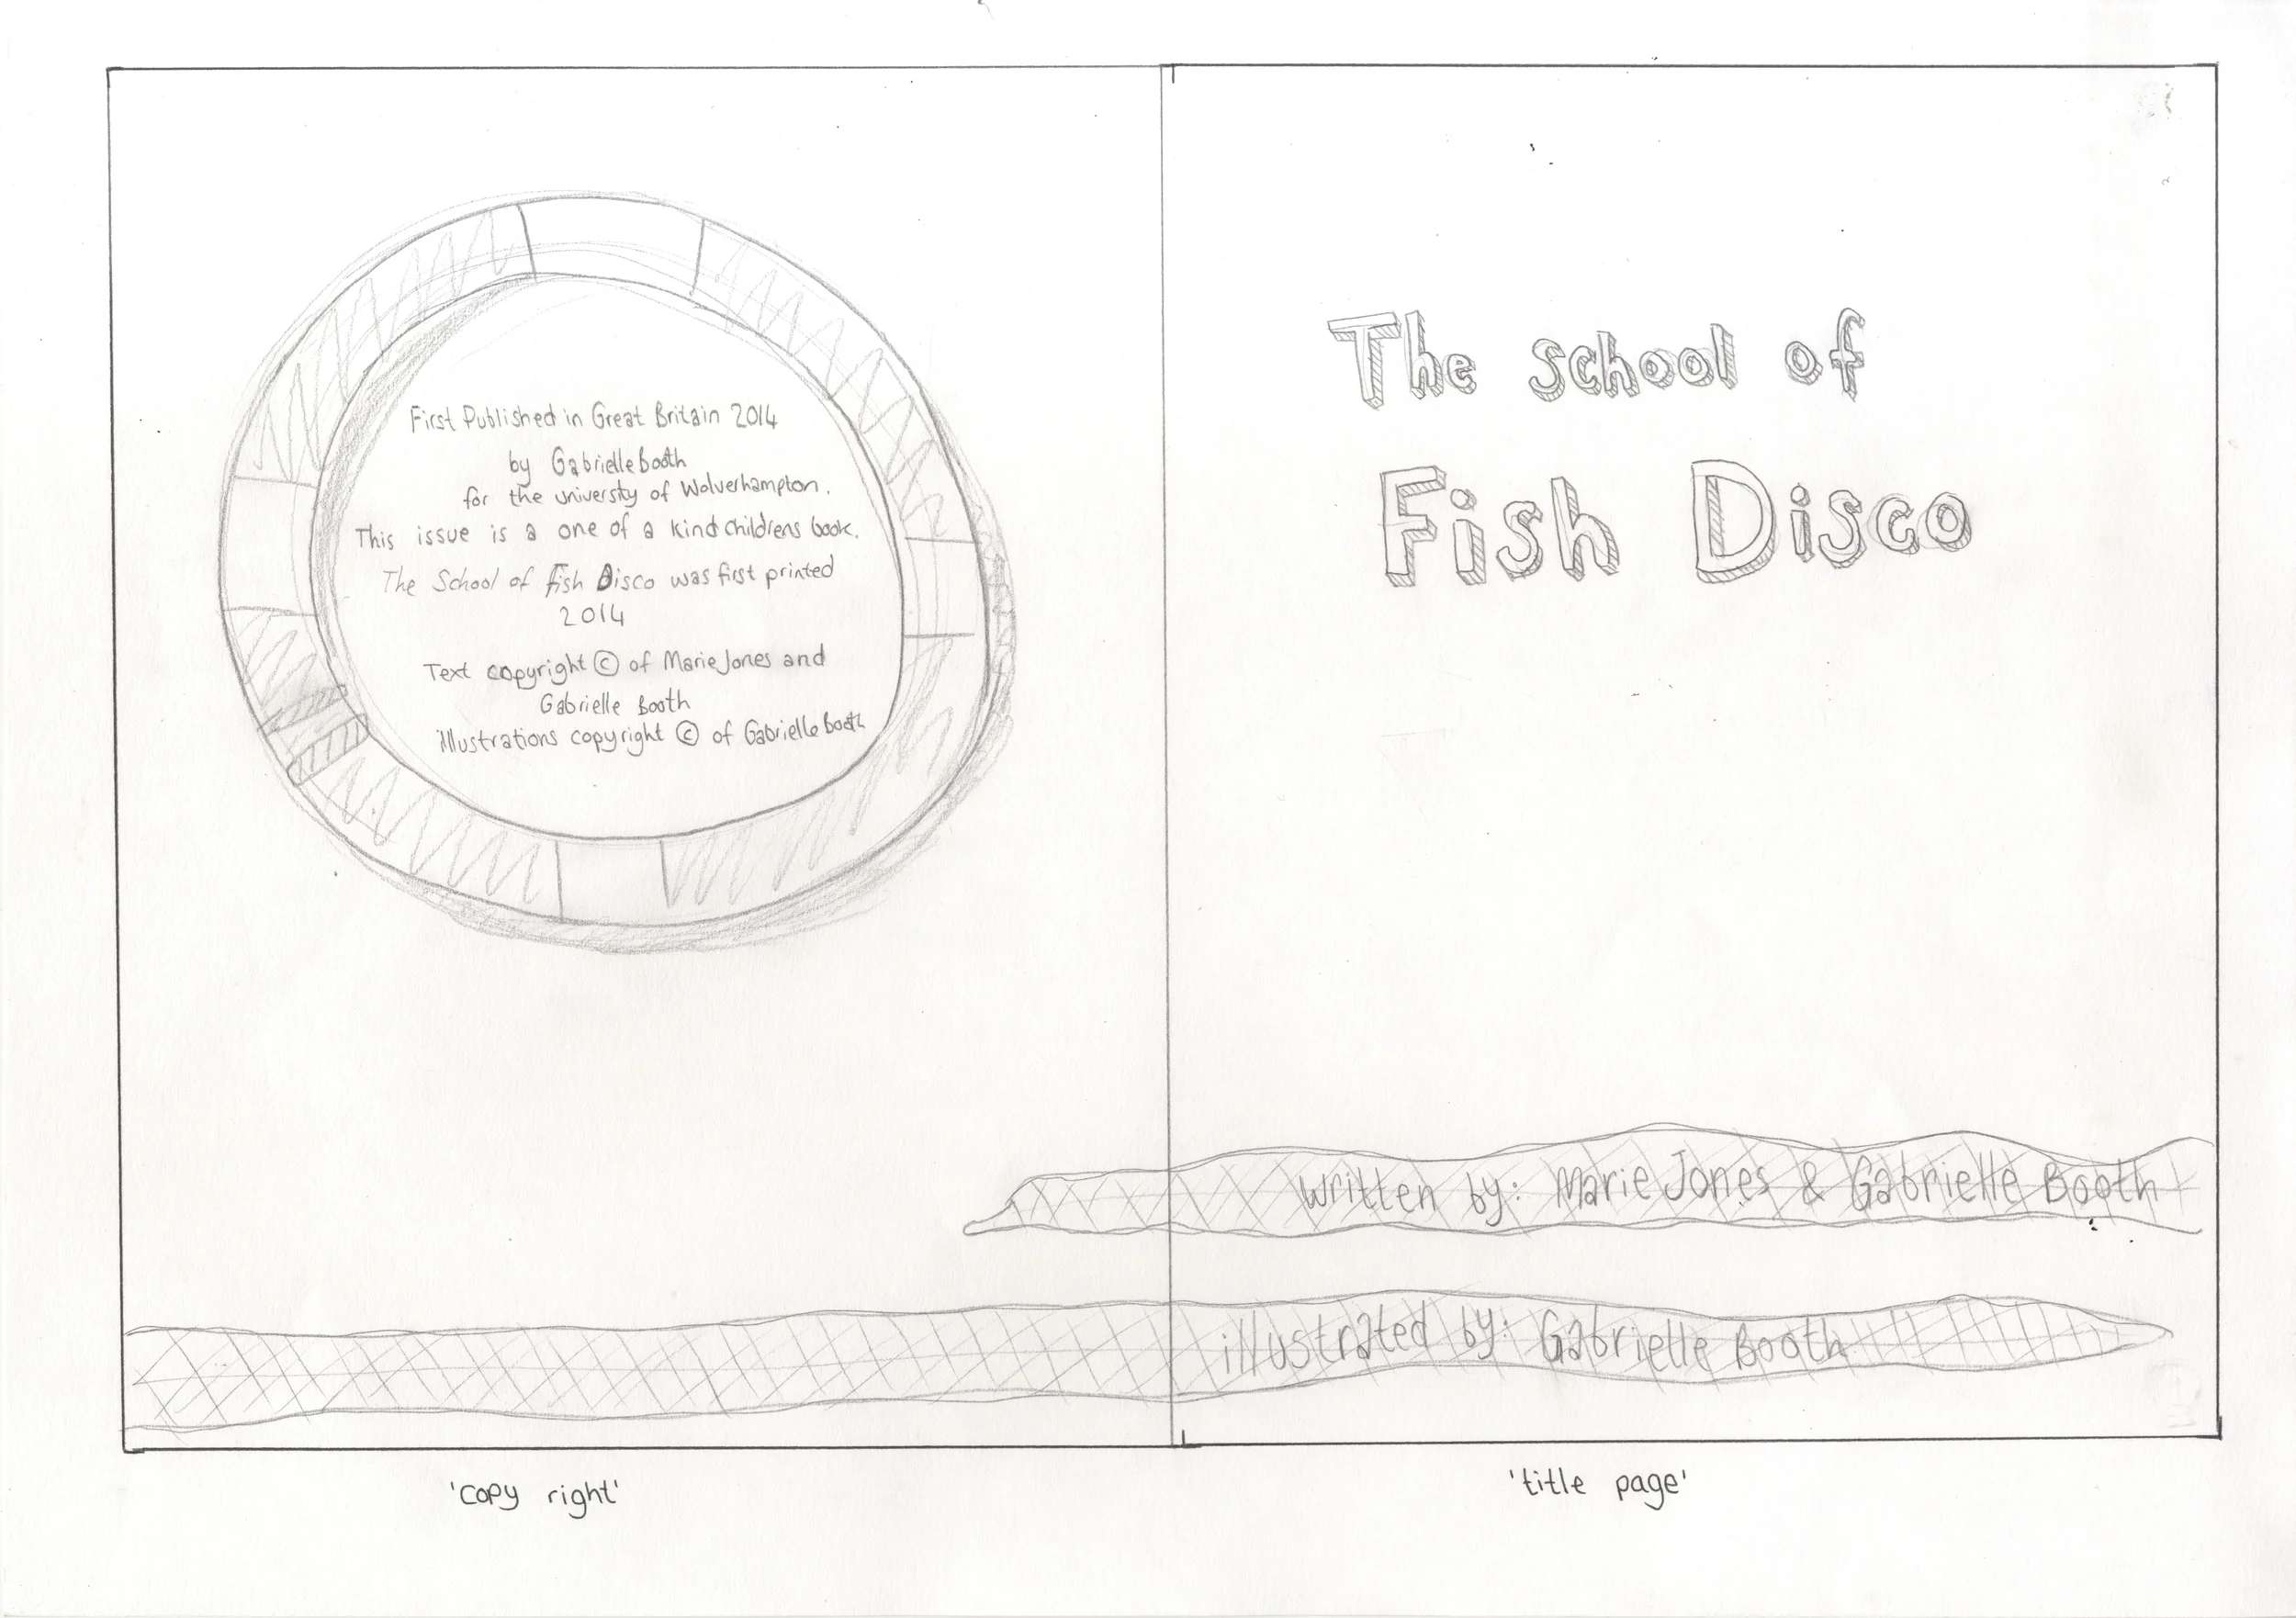 First Published in Great Britain 2014
by Gabrielle Booth
for the university of Wolverhampton.
This issue is a one of a kind childrens book.
The School of Fish Disco was first printed
2014
Text copyright © of Marie Jones and
Gabrielle Booth
illustrations copyright © of Gabrielle Booth
The school of
Fish Disco
written by: Marie Jones & Gabrielle Booth
illustrated by: Gabrielle Booth
'copy right'
'title page'